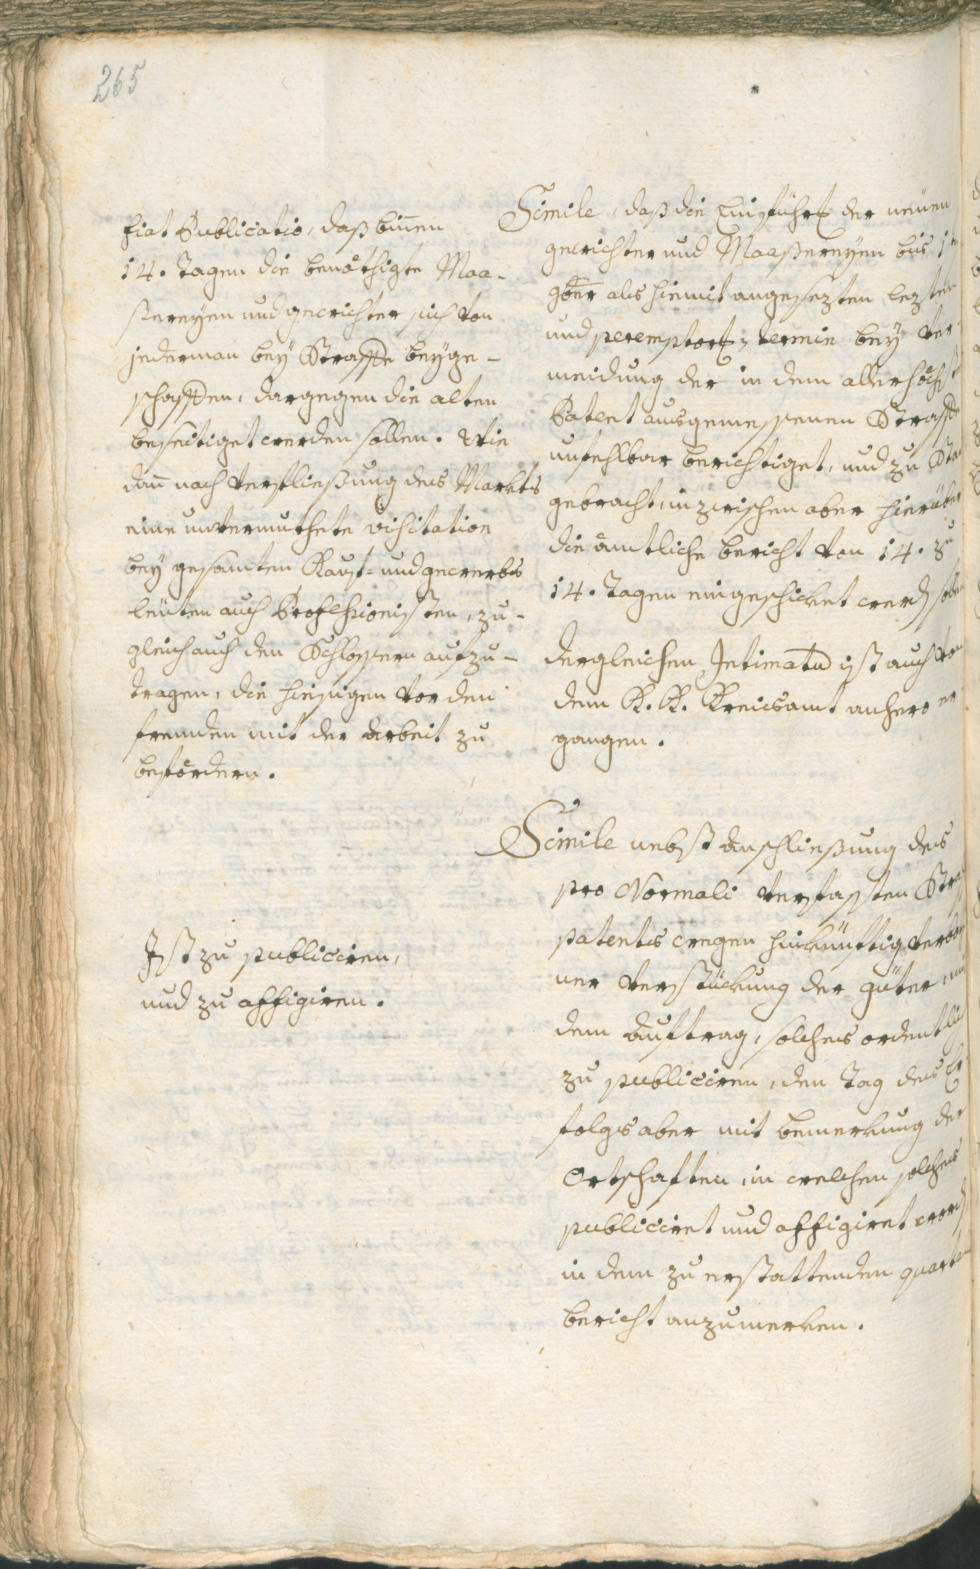 265
Fiat Publicatio, daß binnen
14. Tagen die benöthigte Maa-
ßereyen und gewichter sich von
jederman bey Straffe beyge-
schaffen, dargegen die alten
beseitiget werden sollen. Wie
dan nach Verfließung des Markts
eine unvermuthete visitation
bey gesamten Kauf- und gewerbs
leüten auch Professionisten, zu-
gleich auch den Schlossern aufzu-
tragen, die hiesigen vor den
fremden mit der arbeit zu
befördern.
Ist zu publiciren,
und zu affigiren.
Simile, daß die Einführ der neüen
gewichter und Maaßereyen bis 1ten
9ber als hiemit angesezten lezten
und peremptor termin bey Ver-
meidung der in dem allerhöchst
Patent ausgemessenen Straffe
unfehlbar berichtiget, und zu Stan
gebracht, inzwischen aber hierüber
die ämtliche bericht von 14. zu
14. Tagen eingeschicket werd solle
dergleichen Intimatu ist auch von
dem K. K. Kreisamt anhero er
gangen.
Simile nebst anschließung des
pro Normali verfasten Str
patents wegen hinkünftig verbo
ner Verstückung der güter mit
dem Auftrag, solches ordentli
zu publiciren, den Tag des Er
folgs aber mit bemerkung der
Ortschaften, in welchen solches
publiciret und affigiret word
in dem zu erstattenden quarta
bericht anzumerken.